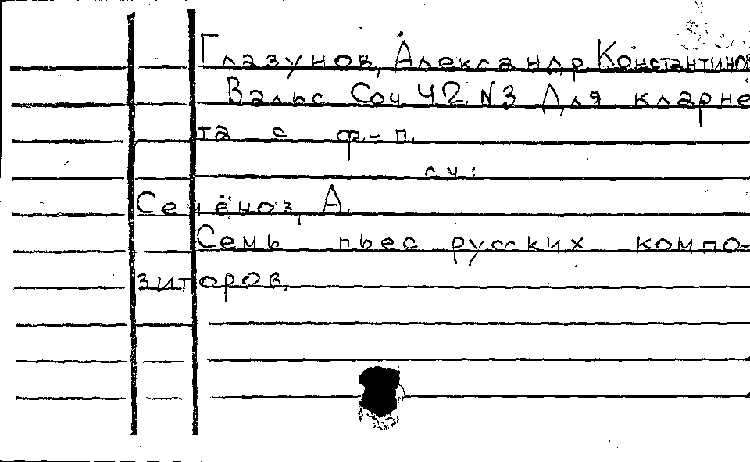 Глазунов, Александр Константинов
Вальс Соч 42 N3 Для кларне
та с ф-п.
см:
Семёнов, А.
Семь пьес русских компо-
зиторов.